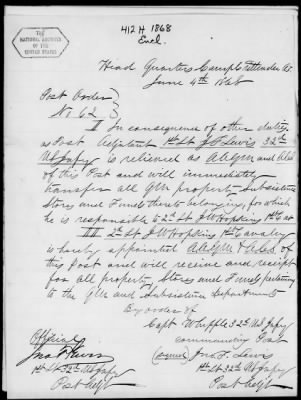 THE
NATIONAL ARCHIVES
OF THE
UNITED STATES
412 H 1868
Encl.
Head Quarters Camp Crittenden A.T.
June 4th 1868
Post Order
No 62
I In consequence of other duties
as Post Adjutant 1st Lt J F Lewis 32nd
US Infy is relieved as
of this Post and will immediately
transfer all QM property Subsistence
Stores and Funds thereto belonging, for which
he is responsible to 2nd Lt J W Hopkins 1st Cav
II 2nd Lt J W Hopkins 1st Cavalry
is hereby appointed
this post and will receive and receipt
for all property, Stores and Funds pertaining
to the QM and Subsistence Departments
By order of
Capt Whipple 32nd US Infy
Official
commanding Post
(signed) Jno F. Lewis
Jno F Lewis
1st Lt 32nd US Infy
1st Lt 32 US Infy
Post Adjt
Post Adjt